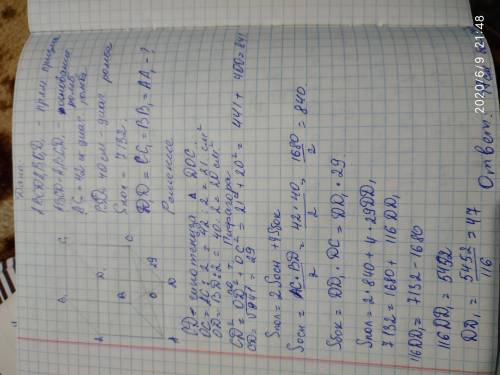 Дано:
ABCDA₁B₁C₁D₁ - прям призма
ABCD - основание
ромб
AC = 42 см диаг. ромба
BD 40 см - диаг ромба
Sпол = 7132.
DD₁ = CC₁ = BB₁ = AA₁ - ?
Решение
B₁
C₁
D₁
B
C
A
O
D
29
CD - гипотенуза Δ DOC
OC = AC : 2 = 42 : 2 = 21 см²
OD = BD : 2 = 40 : 2 = 20 см²
по т. Пифагора
CD² = OD² + OC² = 21² + 20² = 441 + 400 = 841
CD = √841 = 29
Sпол = 2Sосн + 4Sбок
Sосн = AC · BD / 2 = 42 · 40 / 2 = 1680 / 2 = 840
Sбок = DD₁ · DC = DD₁ · 29
Sпол = 2 · 840 + 4 · 29DD₁
7132 = 1680 + 116 DD₁
116DD₁ = 7132 - 1680
116 DD₁ = 5452
DD₁ = 5452 / 116 = 47
Ответ:
2020/6/9 21:48